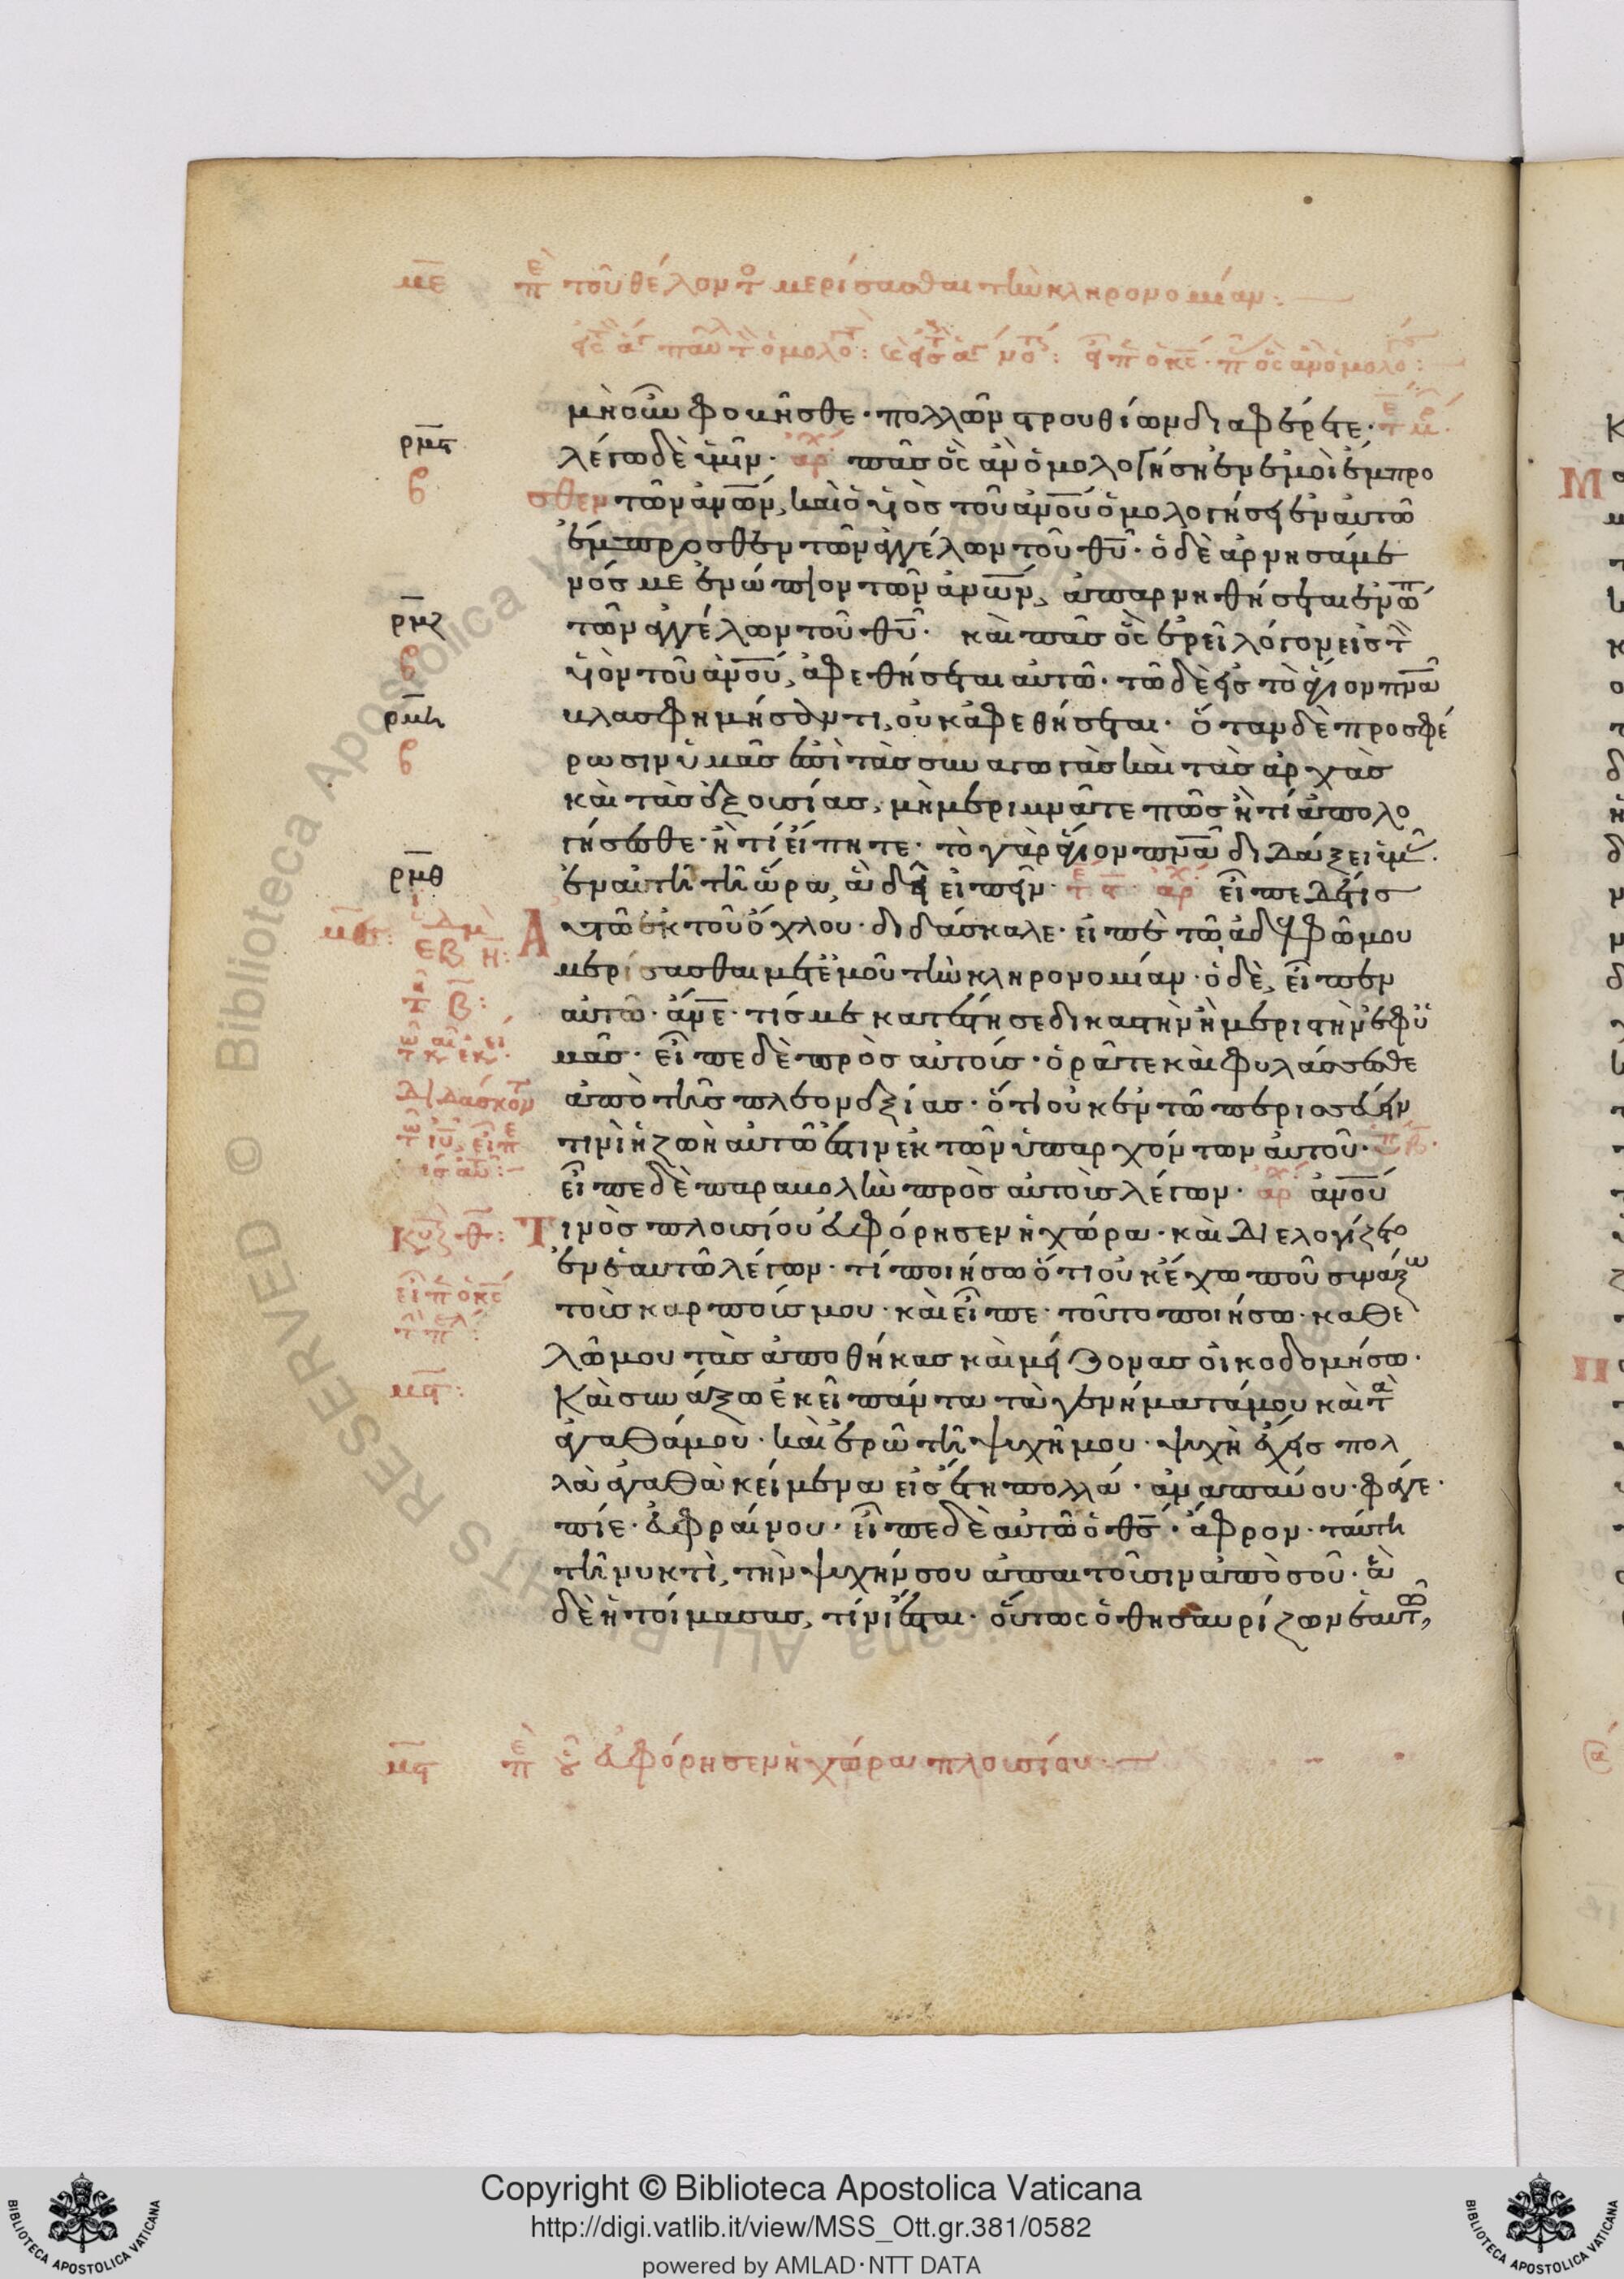 με επὶ τοῦ θέλοντο μερίσασθαι τὴν κληρονομίαν:
μὴ οὖν φοβῆσθε· πολλῶν στρουθίων διαφέρετε·
λέγω δὲ ὑμῖν· ἀρχ πᾶσ ὃς ἂν ὁμολογήση ἐν ἐμοὶ ἔμπρο
σθεν τῶν ἀνων, καὶ ὁ υἱὸσ τοῦ ἀνου ὁμολογήσει ἐν αὐτῶ
ἔμπροσθεν τῶν ἀγγέλων τοῦ θυ· ὁ δὲ ἀρνησάμε
νόσ με ἐνώπιον τῶν ἀνων, ἀπαρνηθήσεται ἐνωπ
τῶν ἀγγέλων τοῦ θυ· καὶ πᾶσ ὃς ἐρεῖ λόγον εἰσ τὸν
υἱὸν τοῦ ἀνου, ἀφεθήσεται αὐτῶ· τῶ δὲ εἰσ τὸ ἅγιον πνα
βλασφημήσοντι, οὐκ ἀφεθήσεται· ὅταν δὲ προσφέ
ρωσιν ὑμᾶσ ἐπὶ τὰσ συναγωγὰσ καὶ τὰσ ἀρχὰσ
καὶ τὰσ ἐξουσίασ, μὴ μεριμνᾶτε πῶσ ἢ τί ἀπολο
γήσεσθε· ἢ τί εἴπητε· τὸ γὰρ ἅγιον πνα διδάξει ὑμᾶς·
ἐν αὐτῆ τῆ ὥρα, ἃ δεῖ εἰπεῖν· ἀρχ εἶπε δέ τισ
αὐτῶ ἐκ τοῦ ὄχλου· διδάσκαλε· εἰπὲ τῶ ἀδελφῶ μου
μερίσασθαι μετ' ἐμοῦ τὴν κληρονομίαν· ὁ δὲ, εἶπεν
αὐτῶ· ἄνε· τίσ με κατέστησε δικαστὴν ἢ μεριστὴν ἐφ' ὑ
μᾶσ· εἶπε δὲ πρὸσ αὐτούσ· ὁρᾶτε καὶ φυλάσσεσθε
ἀπὸ τῆσ πλεονεξίασ· ὅτι οὐκ ἐν τῶ περισσεύειν
τινὶ ἡ ζωὴ αὐτῶ ἐστιν ἐκ τῶν ὑπαρχόντων αὐτοῦ·
εἶπε δὲ παραβολὴν πρὸσ αὐτοὺσ λέγων· ἀρχ ἀνου
τινὸσ πλουσίου εὐφόρησεν ἡ χώρα· καὶ διελογίζετο
ἐν ἑαυτῶ λέγων· τί ποιήσω ὅτι οὐκ ἔχω ποῦ συνάξω
τοὺσ καρπούσ μου· καὶ εἶπε· τοῦτο ποιήσω· καθε
λῶ μου τὰσ ἀποθήκασ καὶ μείζονασ οἰκοδομήσω·
Καὶ συνάξω ἐκεῖ πάντα τὰ γενήματά μου καὶ τὰ
ἀγαθά μου· καὶ ἐρῶ τῆ ψυχῆ μου· ψυχὴ ἔχεισ πολ
λὰ ἀγαθὰ κείμενα εἰσ ἔτη πολλά· ἀναπαύου· φάγε·
πίε· εὐφραίνου· εἶπε δὲ αὐτῶ ὁ θσ· ἄφρον· ταύτη
τῆ νυκτὶ, τὴν ψυχήν σου ἀπαιτοῦσιν ἀπὸ σοῦ· ἃ
δὲ ἡτοίμασασ, τίνι ἔσται· οὕτως ὁ θησαυρίζων ἑαυτῶ,
μϛ επὶ οὗ εὐφόρησεν ἡ χώρα πλουσίου:
ρμϛ
β
ρμζ
β
ρμη
β
ρμθ
Copyright © Biblioteca Apostolica Vaticana
http://digi.vatlib.it/view/MSS_Ott.gr.381/0582
powered by AMLAD·NTT DATA
BIBLIOTECA APOSTOLICA VATICANA
BIBLIOTECA APOSTOLICA VATICANA